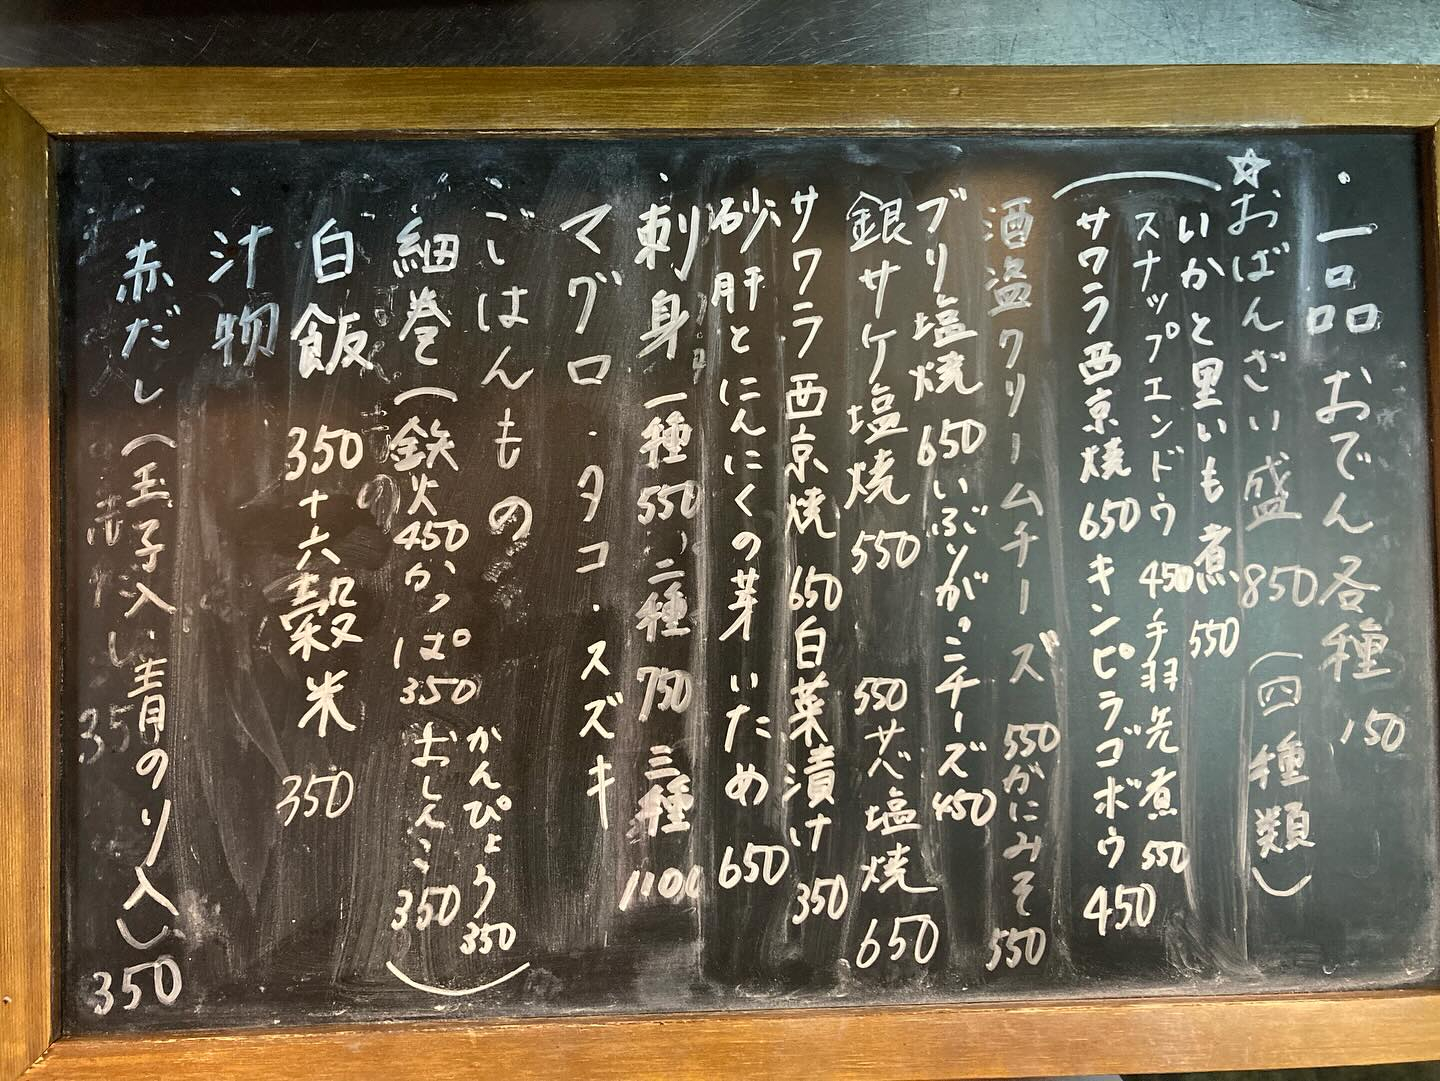 ・一品 おでん各種 150
☆おばんざい盛 850(四種類)
いかと里いも煮 550
スナップエンドウ 450 手羽先煮 550
サワラ西京焼 650 キンピラゴボウ 450
酒盗クリームチーズ 550 がにみそ 550
ブリ塩焼 650 いぶりがっこチーズ 450
銀サケ塩焼 550 サバ塩焼 650
サワラ西京焼 650 白菜漬け 350
砂肝とにんにくの芽いため 650
・刺身 一種 550 二種 750 三種 1100
マグロ・タコ・スズキ
・ごはんもの
・細巻(鉄火 450 かっぱ 350 おしんこ 350
かんぴょう 350)
白飯 350 十六穀米 350
・汁物
赤だし(玉子入い青のり入) 350